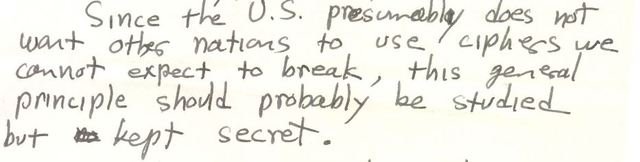 Since the U.S. presumably does not
want other nations to use ciphers we
cannot expect to break, this general
principle should probably be studied
but kept secret.